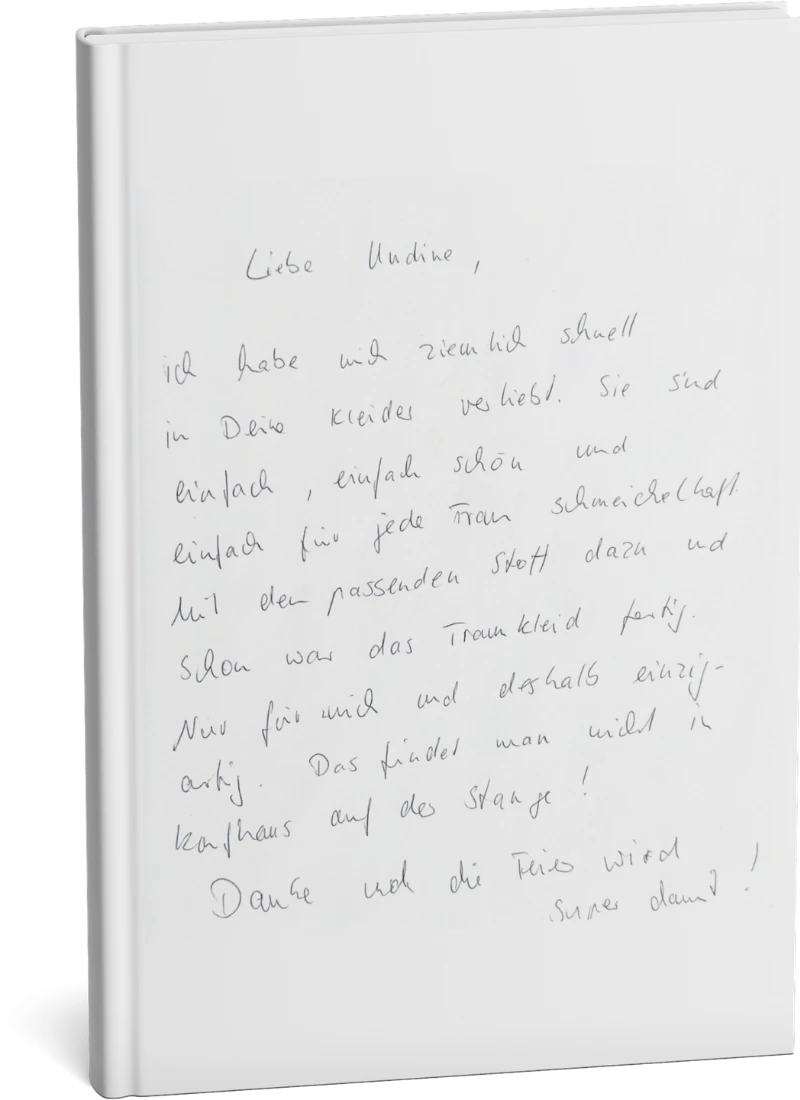 Liebe Undine,
ich habe mich ziemlich schnell
in Deine Kleider verliebt. Sie sind
einfach, einfach schön und
einfach für jede Frau schmeichelhaft.
Mit dem passenden Stoff dazu und
schon war das Traumkleid fertig.
Nur für mich und deshalb einzig-
artig. Das findet man nicht in
Kaufhaus auf der Stange!
Danke und die Feier wird
super damit!